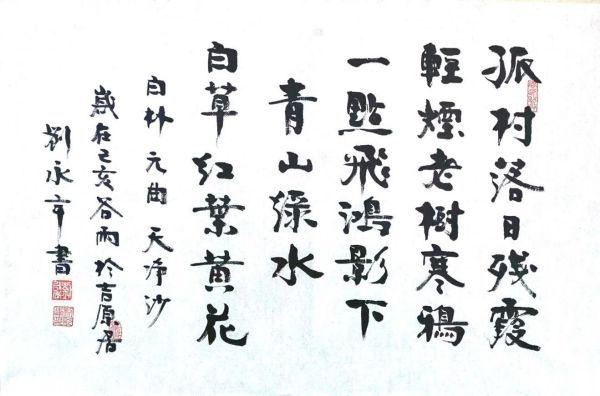 孤村落日残霞
輕煙老樹寒鴉
一點飛鴻影下
青山綠水
白草红葉黄花
白朴元曲天净沙
歲在己亥谷雨於吉原居
劉永章書